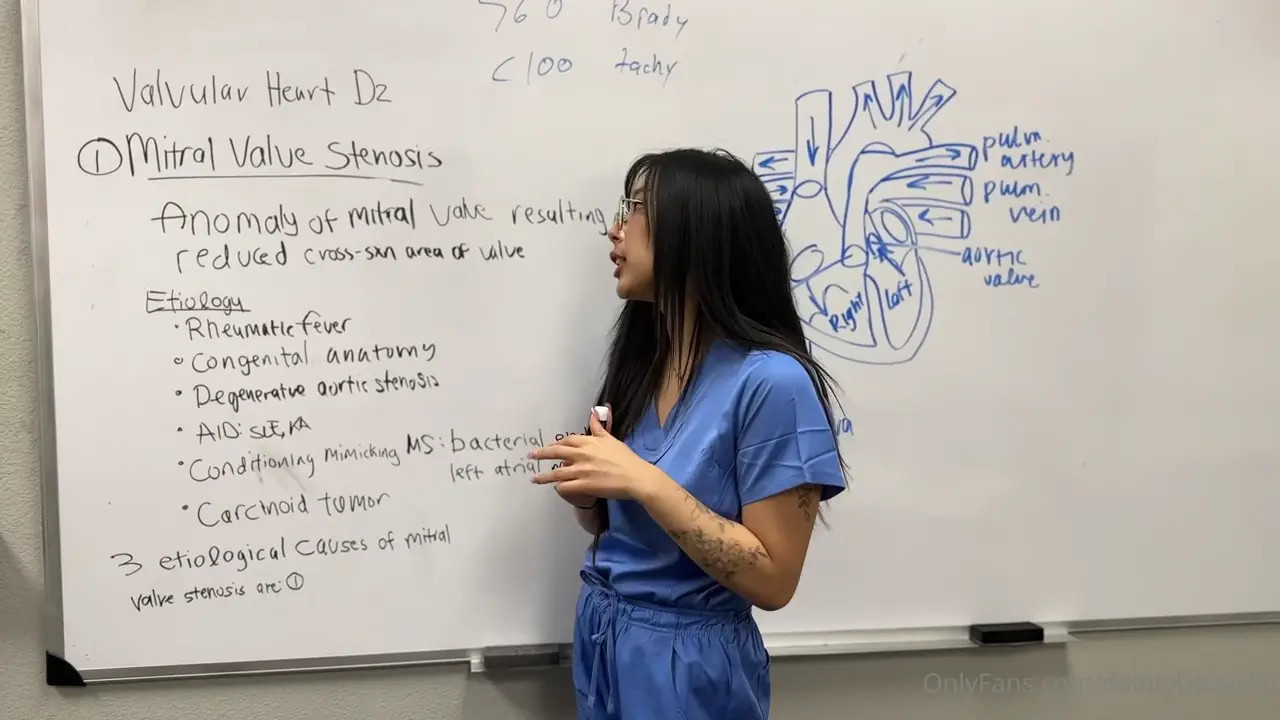 >60 Brady
<100 tachy
Valvular Heart Dz
① Mitral Valve Stenosis
Anomaly of mitral valve resulting
reduced cross-sxn area of valve
Etiology
• Rheumatic fever
• Congenital anatomy
• Degenerative aortic stenosis
• AID: SLE, RA
• Conditioning mimicking MS: bacterial
left atrial
• Carcinoid tumor
3 etiological causes of mitral
valve stenosis are: ①
pulm.
artery
pulm.
vein
aortic
valve
Right
Left
OnlyFans.com/